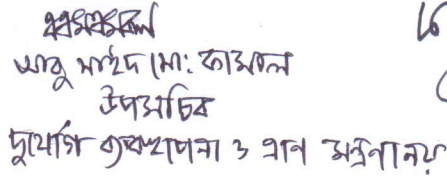 আবু সাইদ মো: কামাল
উপসচিব
দুর্যোগ ব্যবস্থাপনা ও ত্রাণ মন্ত্রণালয়